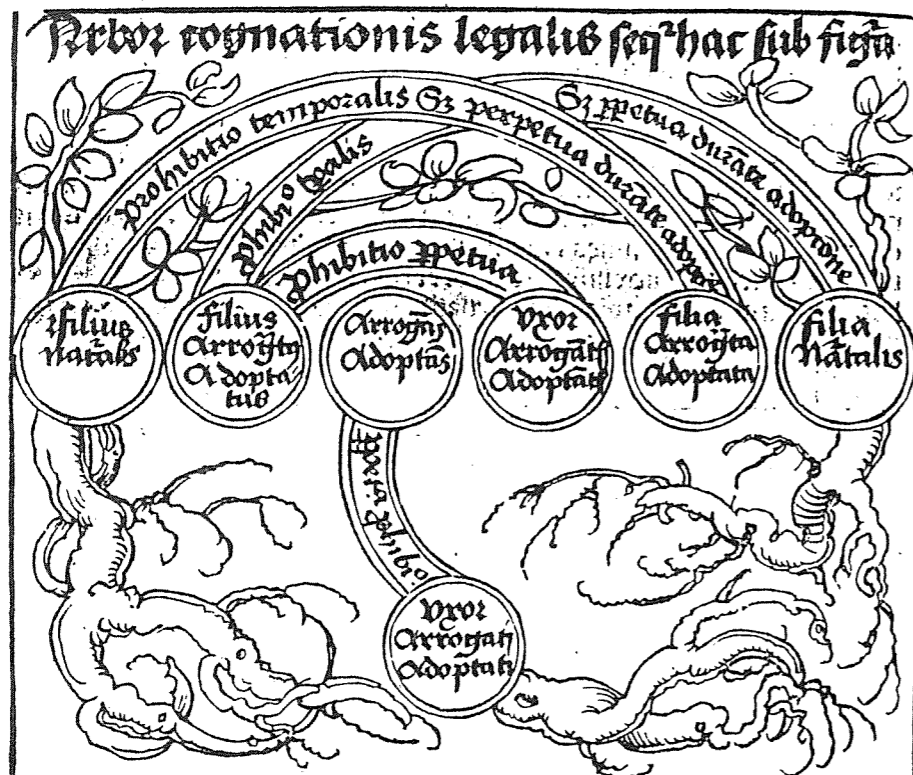 Arbor cognationis legalis seqr hac sub figa
Prohibitio temporalis Sz perpetua durāte adoptōe
Sz ppetua durāte adoptione
phibio tpalis
phibitio ppetua
filius
Natalis
filius
Arrogatꝰ
Adopta
tus
Arrogās
Adoptās
Vxor
Arrogātis
Adoptātis
filia
Arrogata
Adoptata
filia
Natalis
ppetua phibio
Vxor
Arrogati
Adoptati